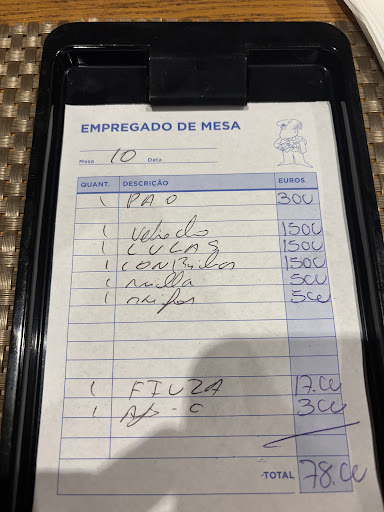 EMPREGADO DE MESA
Mesa 10 Data
QUANT. DESCRIÇÃO EUROS
1 PAO 300
1 Veludo 1500
1 LULAS 1500
1 1500
1 500
1 500
1 FIUZA 17.00
1 300
TOTAL 78.00